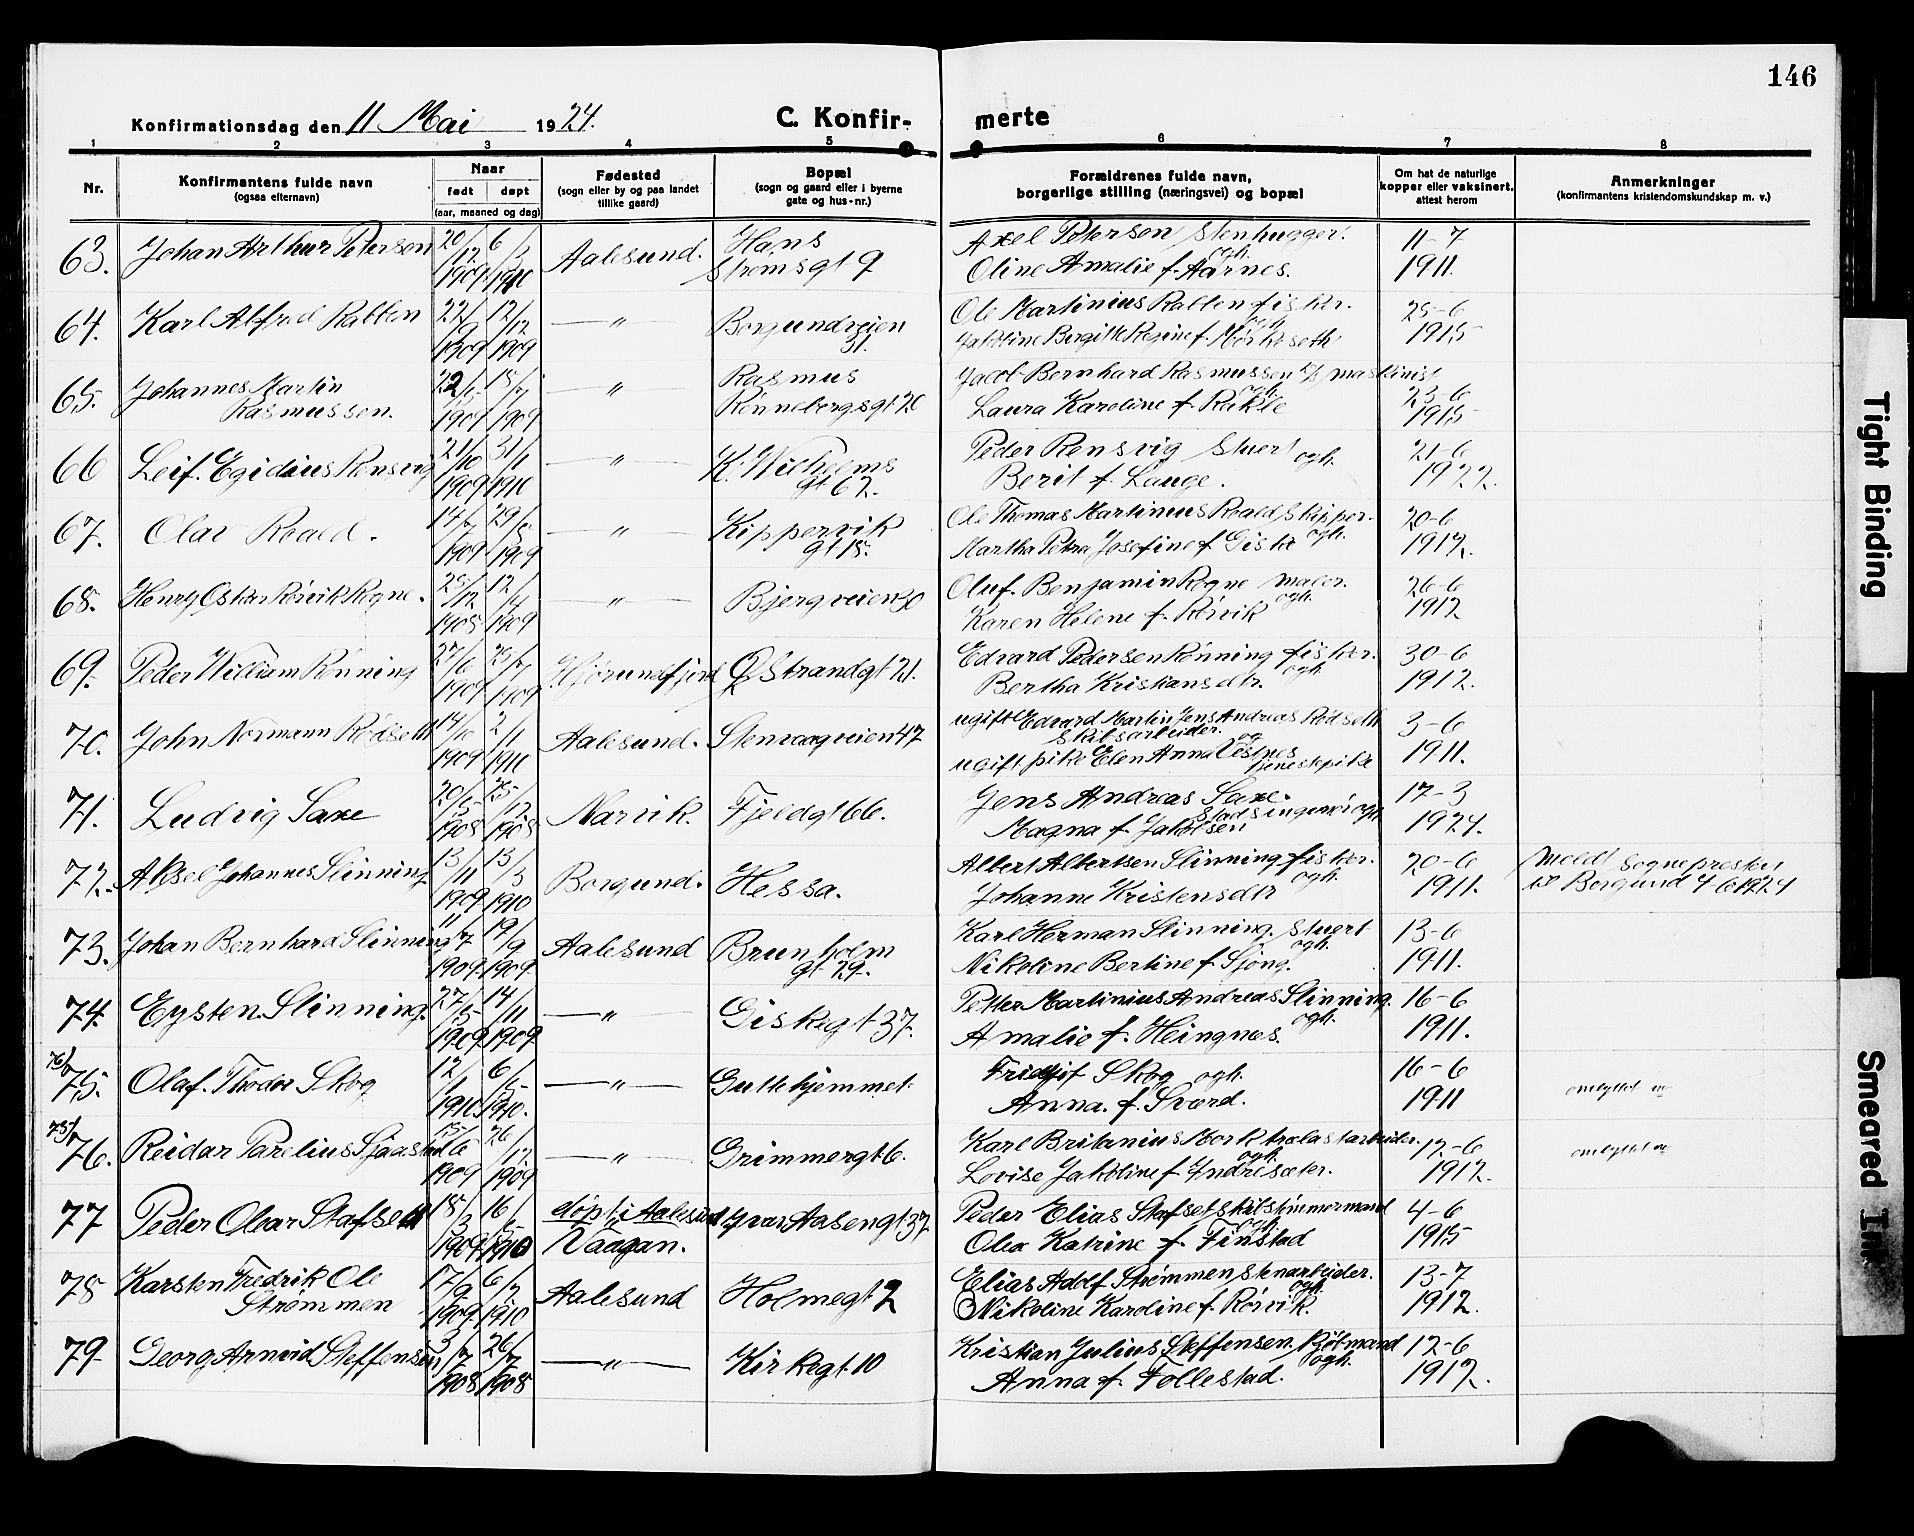 146
Konfirmationsdag den 11 Mai 1924.
C. Konfir- merte
1 2 3 4 5 6 7 8
Nr.
Konfirmantens fulde navn
(ogsaa efternavn)
Naar
født døpt
(aar, maaned og dag)
Fødested
(sogn eller by og paa landet
tillike gaard)
Bopæl
(sogn og gaard eller i byerne
gate og hus-nr.)
Forældrenes fulde navn,
borgerlige stilling (næringsvei) og bopæl
Om hat de naturlige
kopper eller vaksinert,
attest herom
Anmerkninger
(konfirmantens kristendomskundskap m. v.)
63. Johan Arthur Peterson 20/12 1909. 6/2 1910 Aalesund. Hans
Strømsgt 9
Axel Peterson Stenhugger.
ogh.
Oline Amalie f. Aarnes.
11-7
1911.
64. Karl Alfred Rabben 22/9 1909 12/12 1909 —"— Borgundveien
31.
Ole Martinius Rabben fisker.
ogh
Jakoline Bergitte Regine f. Mørkeseth
25-6
1915
65. Johannes Martin
Rasmussen.
22/5 1909 15/7 1909 —"— Rasmus
Rønnebergsgt 20
Jacob Bernhard Rasmussen maskinist
ogh.
Laura Karoline f. Rekle
23-6
1915
66 Leif. Egidius Rensvig 21/10 1909 31/1 1910 —"— K. Wilhelms
gt 62.
Peder Rensvig Stuert ogh.
Berit f. Lange.
21-6
1922.
67. Olav Roald. 14/7 1909 29/8 1909 —"— Kippervik
gt 15.
Ole Thomas Martinius Roald Skipper.
ogh.
Martha Petra Josefine f Giske
20-6
1912.
68. Henry Oskar Rörvik Rogne. 25/12 1908 12/4 1909 —"— Bjergveien 30
Oluf. Benjamin Rogne maler.
ogh.
Karen Helene f. Rörvik
26-6
1912
69. Peder William Rönning 27/6 1909 25/7 1909 Hjørundfjord Ø Strandgt 21.
Edvard Pedersen Rönning fisker.
ogh
Bertha Kristiansdtr.
30-6
1912.
70. John Normann Rödseth 14/10 1909 2/1 1911 Aalesund. Stenvaagveien 47
ugift Edvard Martin Jens Andreas Rødseth
Skibsarbeider. og
ugift pike Elen Anna Vestnes
tjenestepike
3-6
1911.
71. Ludvig Saxe 20/5 1908 25/12 1908 Narvik. Fjeldgt 66.
Jens Andreas Saxe.
Stadsingeniør ogh
Magna f. Jakobsen
17-3
1924.
72. Aksel Johannes Slinning 13/11 1909 13/3 1910 Borgund. Hessa.
Albert Albertsen Slinning fisker.
ogh.
Johanne Kristensdtr
20-6
1911.
meldt sognepresten
til Borgund 4-6 1924
73. Johan Bernhard Slinning 11/7 1909 19/9 1909 Aalesund Brunholm
gt 29.
Karl Herman Slinning. Stuert
ogh.
Nikoline Bertine f Sjong.
13-6
1911.
74. Eysten Slinning. 27/5 1909 14/11 1909 —"— Giskegt 37.
Petter Martinius Andreas Slinning.
ogh.
Amalie f. Heingnes.
16-6
1911.
76/
75. Olaf. Thodor Skog 12/1 1910 6/5 1910. —"— Guttehjemmet.
Fridtjof Skog ogh.
Anna. f. Sværd.
16-6
1911
ombyttet
75/
76. Reidar Parelius Sjaastad 15/6 1909 26/12 1909 —"— Grimmergt 6.
Karl Britanius Mork trælastarbeider.
ogh.
Lovise Jakobine f Indresæter.
12-6
1912.
ombyttet
77 Peder Olear Stafseth 18/3 1909 16/5 1910 døpt i Aalesund
Vaagan.
Ivar Aasengt 37
Peder Elias Stafset skibstømmermand
ogh.
Olea Katrine f. Finstad
4-6
1915
78 Karsten Fredrik Ole
Strømmen
17/9 1909. 6/2 1910 Aalesund Holmegt 2
Elias Adolf Strømmen stenarbeider.
ogh.
Nikoline Karoline f. Rörvik.
13-7
1912.
79 Georg Arnvid Steffensen 3/7 1908 26/7 1908 —"— Kirkegt 10
Kristian Julius Steffensen. Kjøbmand
ogh.
Anna f. Follestad.
12-6
1912.
Tight Binding
Smeared Ink